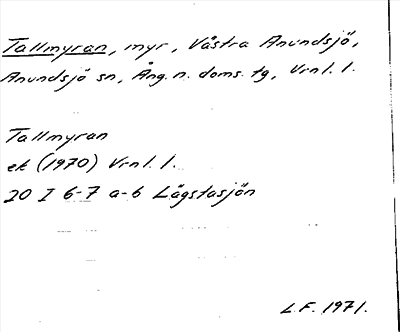 Tallmyran, myr, Västra Anundsjö,
Anundsjö sn, Ång. n. doms. tg, Vrnl. l.
Tallmyran
ek (1970) Vrnl. l.
20 I 6-7 a-b Lågstasjön
L.F. 1971.